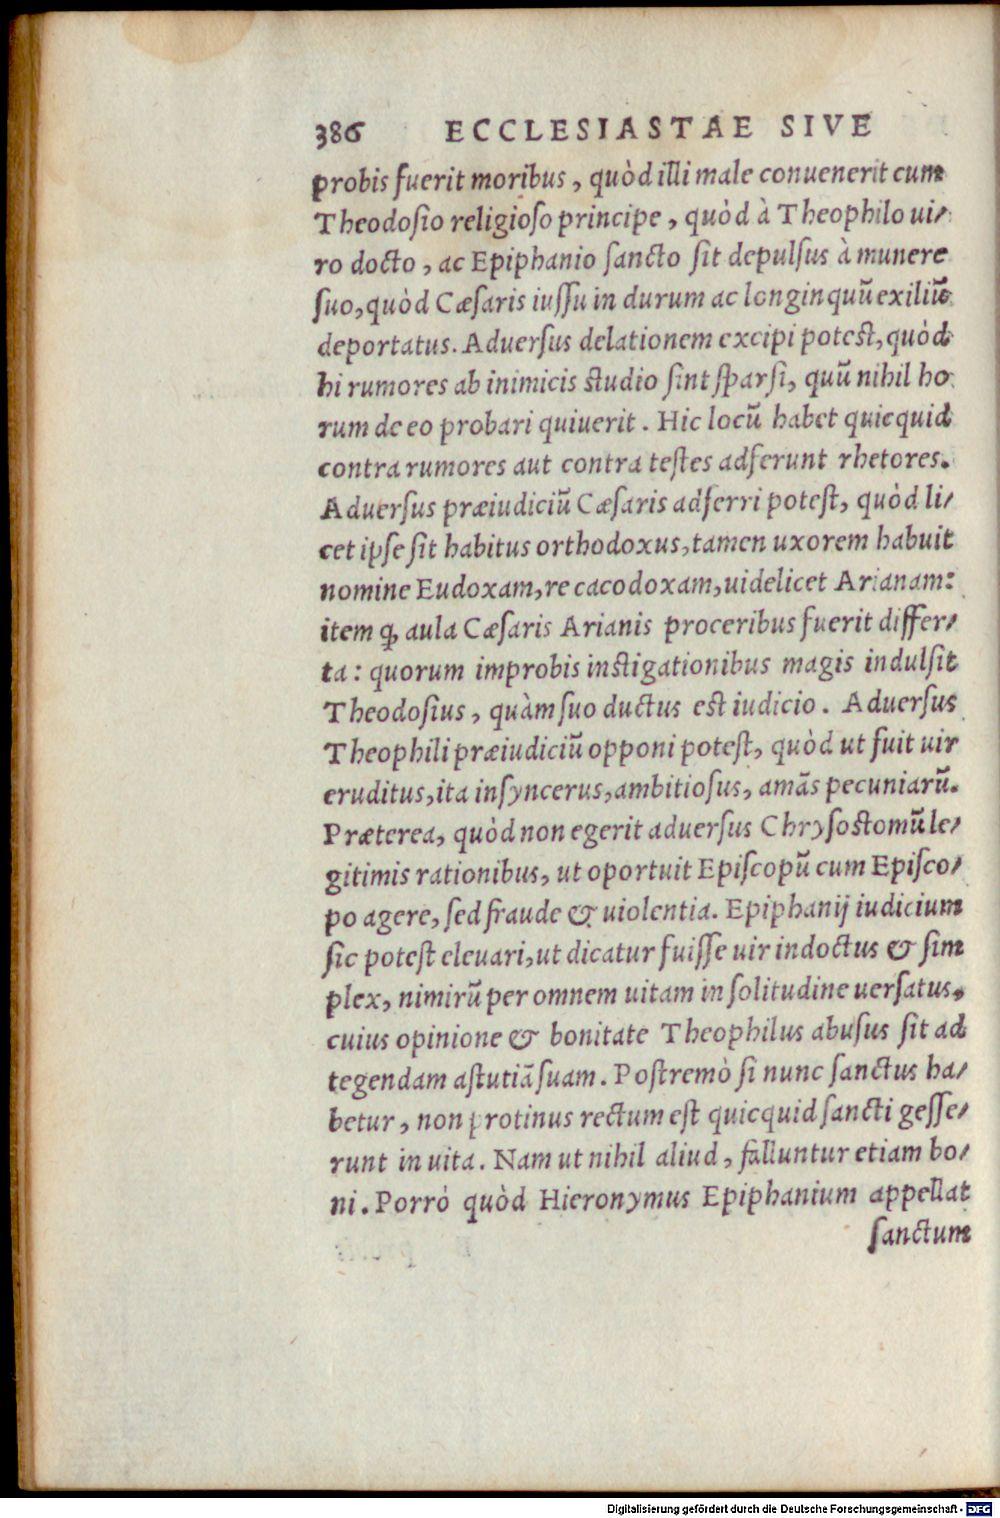 386 ECCLESIASTAE SIVE
probis fuerit moribus, quòd illi male conuenerit cum
Theodosio religioso principe, quòd à Theophilo ui-
ro docto, ac Epiphanio sancto sit depulsus à munere
suo, quòd Cæsaris iussu in durum ac longinquũ exiliũ
deportatus. Aduersus delationem excipi potest, quòd
hi rumores ab inimicis studio sint sparsi, quũ nihil ho
rum de eo probari quiuerit. Hic locũ habet quicquid
contra rumores aut contra testes adferunt rhetores.
Aduersus præiudiciũ Cæsaris adferri potest, quòd li-
cet ipse sit habitus orthodoxus, tamen uxorem habuit
nomine Eudoxam, re cacodoxam, uidelicet Arianam:
item ꝙ aula Cæsaris Arianis proceribus fuerit differ-
ta: quorum improbis instigationibus magis indulsit
Theodosius, quàm suo ductus est iudicio. Aduersus
Theophili præiudiciũ opponi potest, quòd ut fuit uir
eruditus, ita insyncerus, ambitiosus, amãs pecuniarũ.
Præterea, quòd non egerit aduersus Chrysostomũ le-
gitimis rationibus, ut oportuit Episcopũ cum Episco-
po agere, sed fraude & uiolentia. Epiphanij iudicium
sic potest eleuari, ut dicatur fuisse uir indoctus & sim
plex, nimirũ per omnem uitam in solitudine uersatus,
cuius opinione & bonitate Theophilus abusus sit ad
tegendam astutiã suam. Postremò si nunc sanctus ha-
betur, non protinus rectum est quicquid sancti gesse-
runt in uita. Nam ut nihil aliud, falluntur etiam bo-
ni. Porrò quòd Hieronymus Epiphanium appellat
sanctum
Digitalisierung gefördert durch die Deutsche Forschungsgemeinschaft - DFG